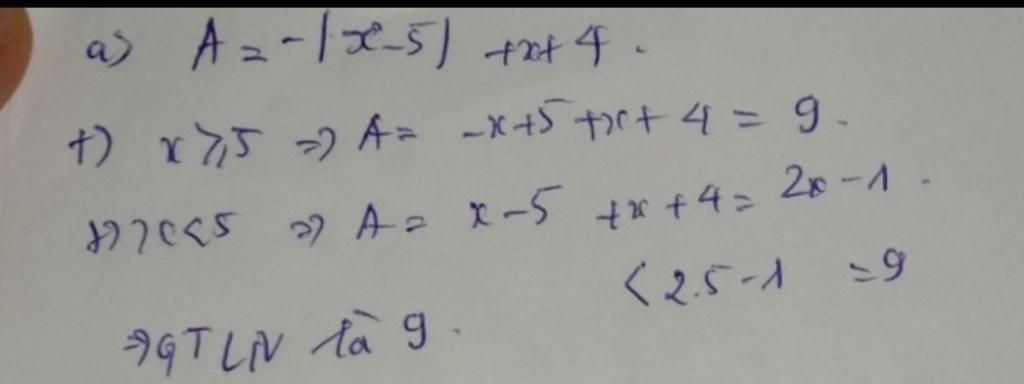 a) A = -|x-5| +x+ 4.
+) x ⩾ 5 ⇒ A = -x+5 +x+ 4 = 9.
+) x < 5 ⇒ A = x-5 +x+4 = 2x-1.
< 2.5-1 = 9
⇒ GTLN là 9.